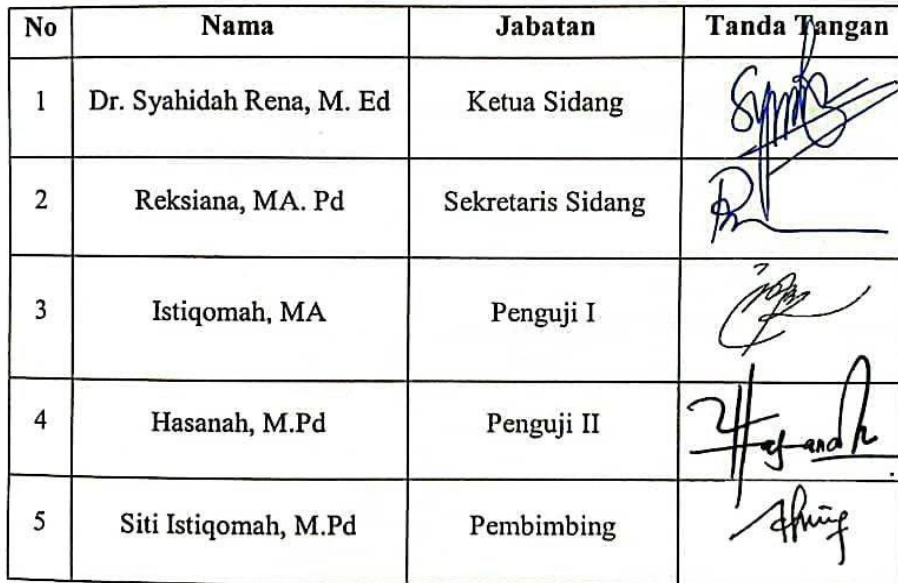 No Nama Jabatan Tanda Tangan
1 Dr. Syahidah Rena, M. Ed Ketua Sidang
2 Reksiana, MA. Pd Sekretaris Sidang
3 Istiqomah, MA Penguji I
4 Hasanah, M.Pd Penguji II
5 Siti Istiqomah, M.Pd Pembimbing